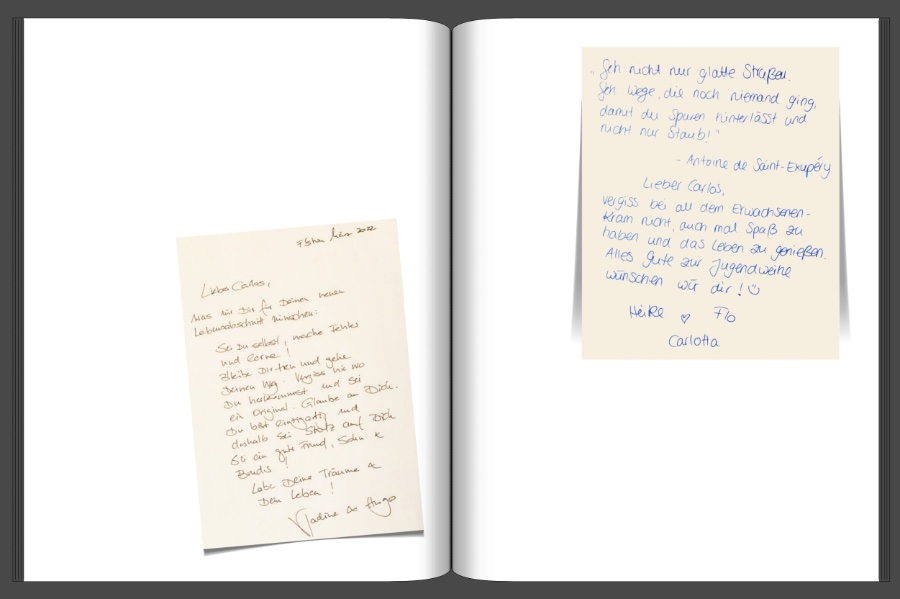 Lieber Carlos,
was wir Dir für Deinen neuen
Lebensabschnitt wünschen:
Sei Du selbst, mache Fehler
und lerne!
Bleibe Dir treu und gehe
Deinen Weg. Vergiss nie wo
Du herkommst und sei
ein Original. Glaube an Dich.
Du bist einzigartig und
deshalb sei Stolz auf Dich
Sei ein guter Freund, Sohn &
Bruder!
Lebe Deine Träume &
Dein Leben!
Nadine & Hugo
„Geh nicht nur glatte Straßen.
Geh Wege, die noch niemand ging,
damit du Spuren hinterlässt und
nicht nur Staub!"
- Antoine de Saint-Exupéry
Lieber Carlos,
vergiss bei all dem Erwachsenen-
kram nicht, auch mal Spaß zu
haben und das Leben zu genießen.
Alles Gute zur Jugendweihe
wünschen wir dir! ☺
Heike ♡ Flo
Carlotta